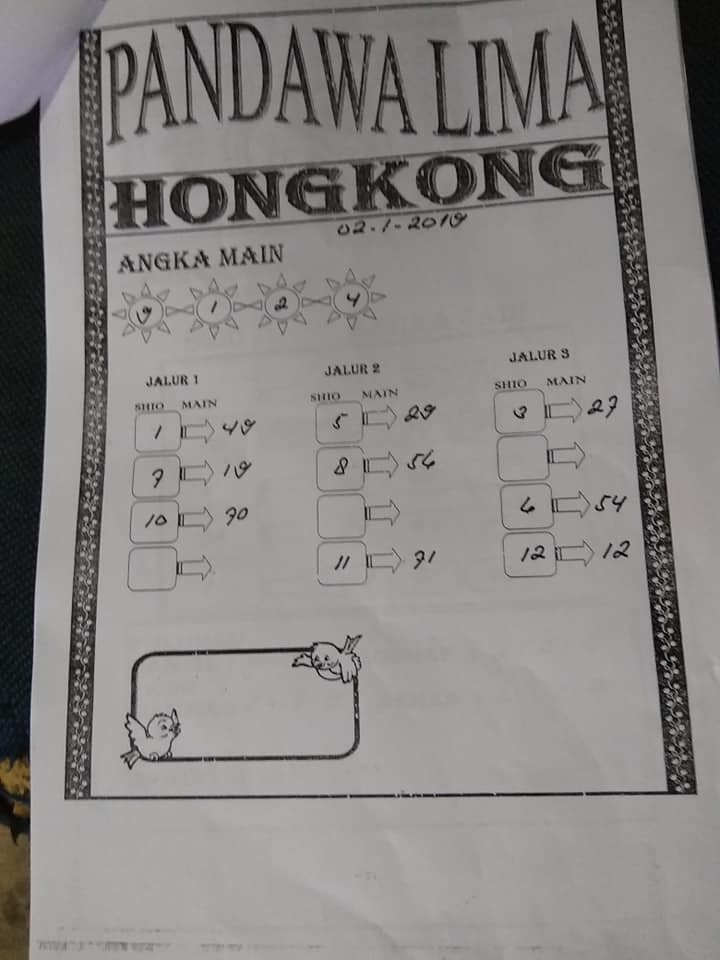 PANDAWA LIMA
HONGKONG
02-1-2019
ANGKA MAIN
9 1 2 4
JALUR 1
SHIO MAIN
1 49
7 19
10 70
JALUR 2
SHIO MAIN
5 29
8 56
11 71
JALUR 3
SHIO MAIN
3 27
6 54
12 12